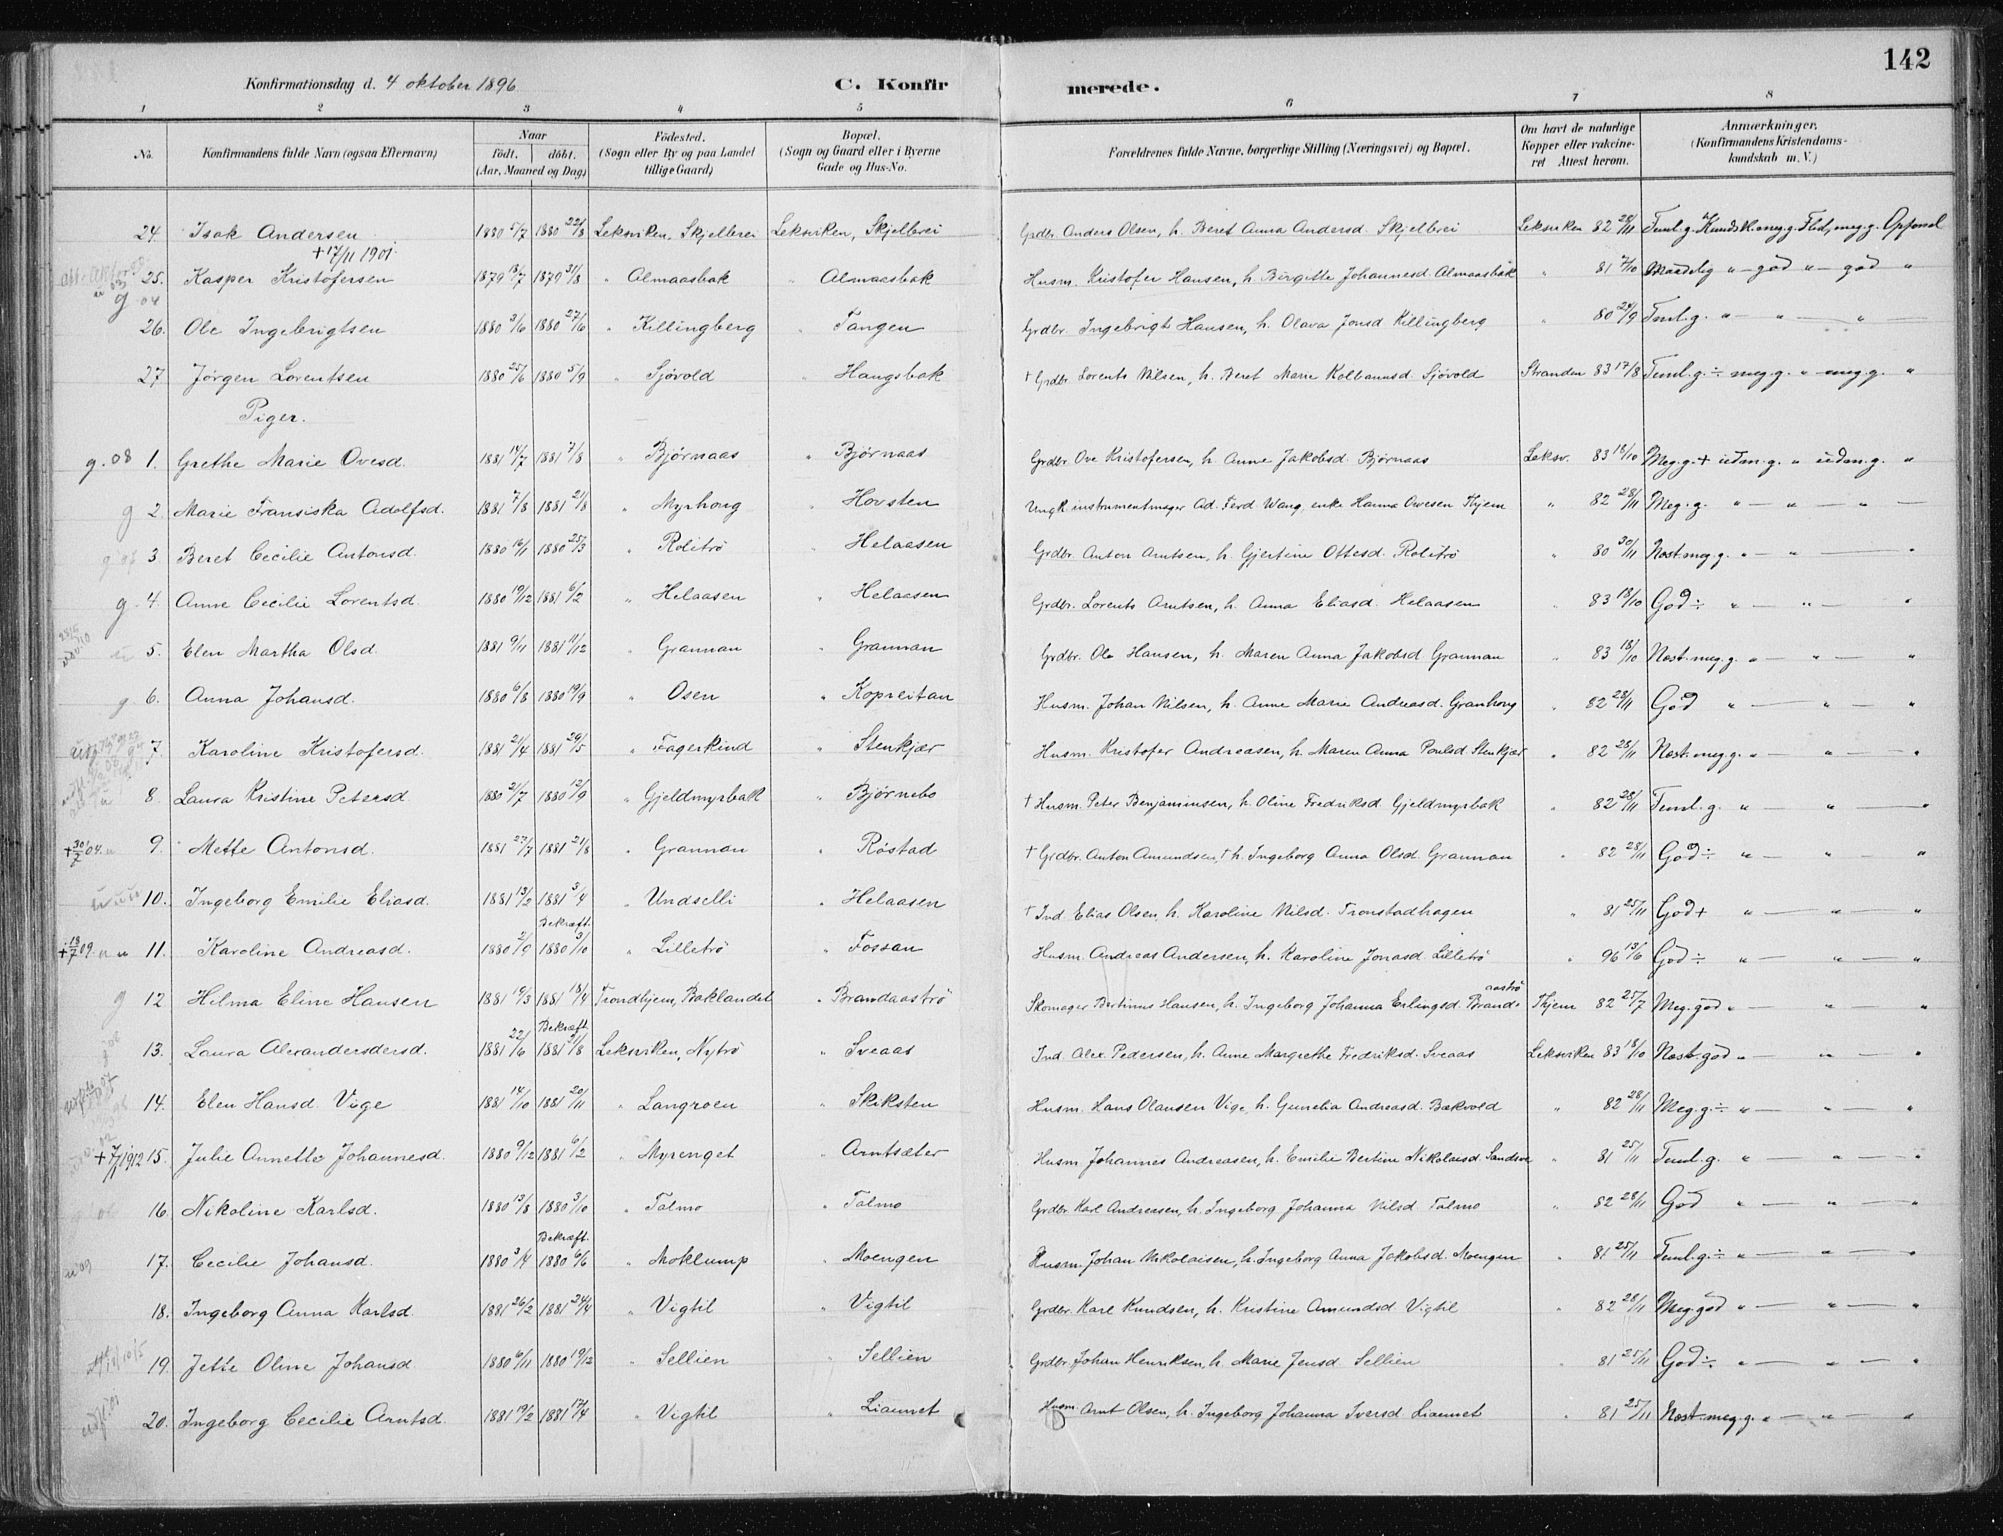 142
Konfirmationsdag d. 4 oktober 1896
C. Konfirmerede.
1 2 3 4 5 6 7 8
No. | Konfirmandens fulde Navn (ogsaa Efternavn) | Naar født. døbt. (Aar, Maaned og Dag) | Fødested. (Sogn eller By og paa Landet tillige Gaard) | Bopæl. (Sogn og Gaard eller i Byerne Gade og Hus-No. | Forældrenes fulde Navne, borgerlige Stilling (Næringsvei) og Bopæl. | Om havt de naturlige Kopper eller vakcineret Attest herom. | Anmærkninger. (Konfirmandens Kristendomskundskab m. V.)
24. Isak Andersen 1880 5/7 1880 22/8 Leksviken, Skjelbrei Leksviken, Skjelbrei Grdbr. Anders Olsen, h. Beret Anna Andersd. Skjelbrei Leksviken 82 28/11 Teml. g. Kundsk. meg. g. Flid, meg. g. Opførsel
+ 17/11 1901.
25. Kasper Kristofersen 1879 13/7 1879 31/8 " Almaasbak " Almaasbak Husm. Kristofer Hansen, h. Birgitte Johannesd. Almaasbak " 81 7/10 Maadelig " god " god "
26. Ole Ingebrigtsen 1880 3/6 1880 27/6 " Killingberg " Tangen Grdbr. Ingebrigt Hansen, h. Olava Jonsd Killingberg " 80 29/9 Teml. g. " — " — " —
27 Jørgen Lorentsen 1880 25/6 1880 5/9 " Sjøvold " Haugsbak + Grdbr Lorents Nilsen, h. Beret Marie Kolbannsd. Sjøvold Stranden 83 17/8 Teml. g. ÷ meg. g. " meg. g. "
Piger.
g. 08 1. Grethe Marie Ovesd. 1881 14/7 1881 7/8 " Bjørnaas " Bjørnaas Grdbr Ove Kristofersen, h. Anne Jakobsd. Bjørnaas Leksv. 83 18/10 Meg. g. + udm. g. " udm. g. "
g 2. Marie Fransiska Adolfsd. 1881 7/8 1881 21/8 " Myrhoug " Hovsten Ungk instrumentmager Ad. Ferd Wang, enke Hanna Owesen Thjem " 82 28/11 Meg. g. " — " — " —
3. Beret Cecilie Antonsd 1880 16/1 1880 25/3 " Rolitrø " Helaasen Grdbr. Anton Arntsen, h. Gjertine Ottesd. Rolitrø " 80 30/11 Næst. meg. g. " — " — "
g. 4. Anne Cecilie Lorentsd. 1880 19/12 1881 6/2 " Helaasen " Helaasen Grdbr. Lorents Arntsen, h. Anna Eliasd. Helaasen " 83 18/10 God ÷ " — " — "
5. Elen Martha Olsd. 1881 9/11 1881 11/12 " Grannan " Grannan Grdbr. Ole Hansen, h. Maren Anna Jakobsd Grannan " 83 18/10 Næst. meg. g. " — " — "
g 6. Anna Johansd. 1880 6/8 1880 19/9 " Osen " Kopreitan Husm. Johan Nilsen, h. Anne Marie Andreasd. Granhoug " 82 28/11 God " — " — "
7. Karoline Kristofersd. 1881 21/4 1881 29/5 " Fagerkind " Stenkjær Husm. Kristofer Andreasen, h. Maren Anna Poulsd Stenkjær " 82 28/11 Næst. meg. g. " — " — "
8. Laura Kristine Petersd. 1880 2/7 1880 12/9 " Gjeldmyrbak " Bjørnebo + Husm. Peter Benjaminsen, h. Oline Fredriksd. Gjeldmyrbak " 82 28/11 Teml. g. " — " — "
+ 30/7 04. u 9. Mette Antonsd. 1881 27/7 1881 21/8 " Grannan " Røstad + Grdbr. Anton Amundsen, + h. Ingeborg Anna Olsd. Grannan " 82 28/11 God ÷ " — " — "
10. Ingeborg Emilie Eliasd. 1881 13/2 1881 3/4 " Undselli " Helaasen + Ind. Elias Olsen, h. Karoline Nilsd. Tronstadhagen " 81 25/11 God + " — " — "
+ 18/7 09. u u 11. Karoline Andreasd. 1880 2/9 Bekræft. 1880 3/10 " Lilletrø " Fossan Husm. Andreas Andersen, h. Karoline Jonasd. Lilletrø " 96 13/6 God ÷ " — " — "
g 12 Helma Eline Hansen 1881 19/3 1881 18/4 Trondhjem, Baklandet " Brandaastrø Skomager Bertinus Hansen, h. Ingeborg Johanna Erlingsd. Brandaastrø Thjem 82 25/7 Meg. god " — " — "
13. Laura Alexandersdersd. 1881 22/6 Bekræft. 1881 21/8 Leksviken, Nytrø " Sveaas Ind. Alex Pedersen, h. Anne Margrethe Fredriksd. Sveaas Leksviken 83 18/10 Næst. god " — " — "
14. Elen Hansd. Vige 1881 14/10 1881 20/11 " Langroen " Skiksten Husm. Hans Olausen Vige, h. Gunelia Andreasd. Bækvold " 82 28/11 Meg. g. ÷ " — " — "
+ 7/1 1912 15. Julie Annette Johannesd. 1880 9/12 1881 6/2 " Myrenget " Arntsæter Husm. Johannes Andreasen, h. Emilie Bertine Nikolaisd. " 81 25/11 Teml. g. " — " — "
16. Nikoline Karlsd. 1880 13/8 1880 3/10 " Talmo " Talmo Grdbr. Karl Andreasen, h. Ingeborg Johanna Nilsd. Talmo " 82 28/11 God " — " — "
u 09 17. Cecilie Johansd. 1880 3/4 Bekræft. 1880 6/6 " Moklump " Moengen Husm. Johan Nikolaisen, h. Ingeborg Anna Jakobsd. Moengen " 81 25/11 Teml. g. ÷ " — " — "
18. Ingeborg Anna Karlsd. 1881 26/2 1881 24/4 " Vigtil " Vigtil Grdbr. Karl Knudsen, h. Kristine Amundsd Vigtil " 82 28/11 Meg. god " — " — "
19. Jette Oline Johansd 1880 6/11 1880 19/12 " Sellien " Sellien Grdbr. Johan Henriksen, h. Marie Jensd. Sellien " 81 25/11 God ÷ " — " — "
20. Ingeborg Cecilie Arntsd. 1881 19/2 1881 17/4 " Vigtil " Liaunet Husm. Arnt Olsen, h. Ingeborg Johanna Iversd Liaunet " 81 25/11 Næst. meg. g. " — " — "